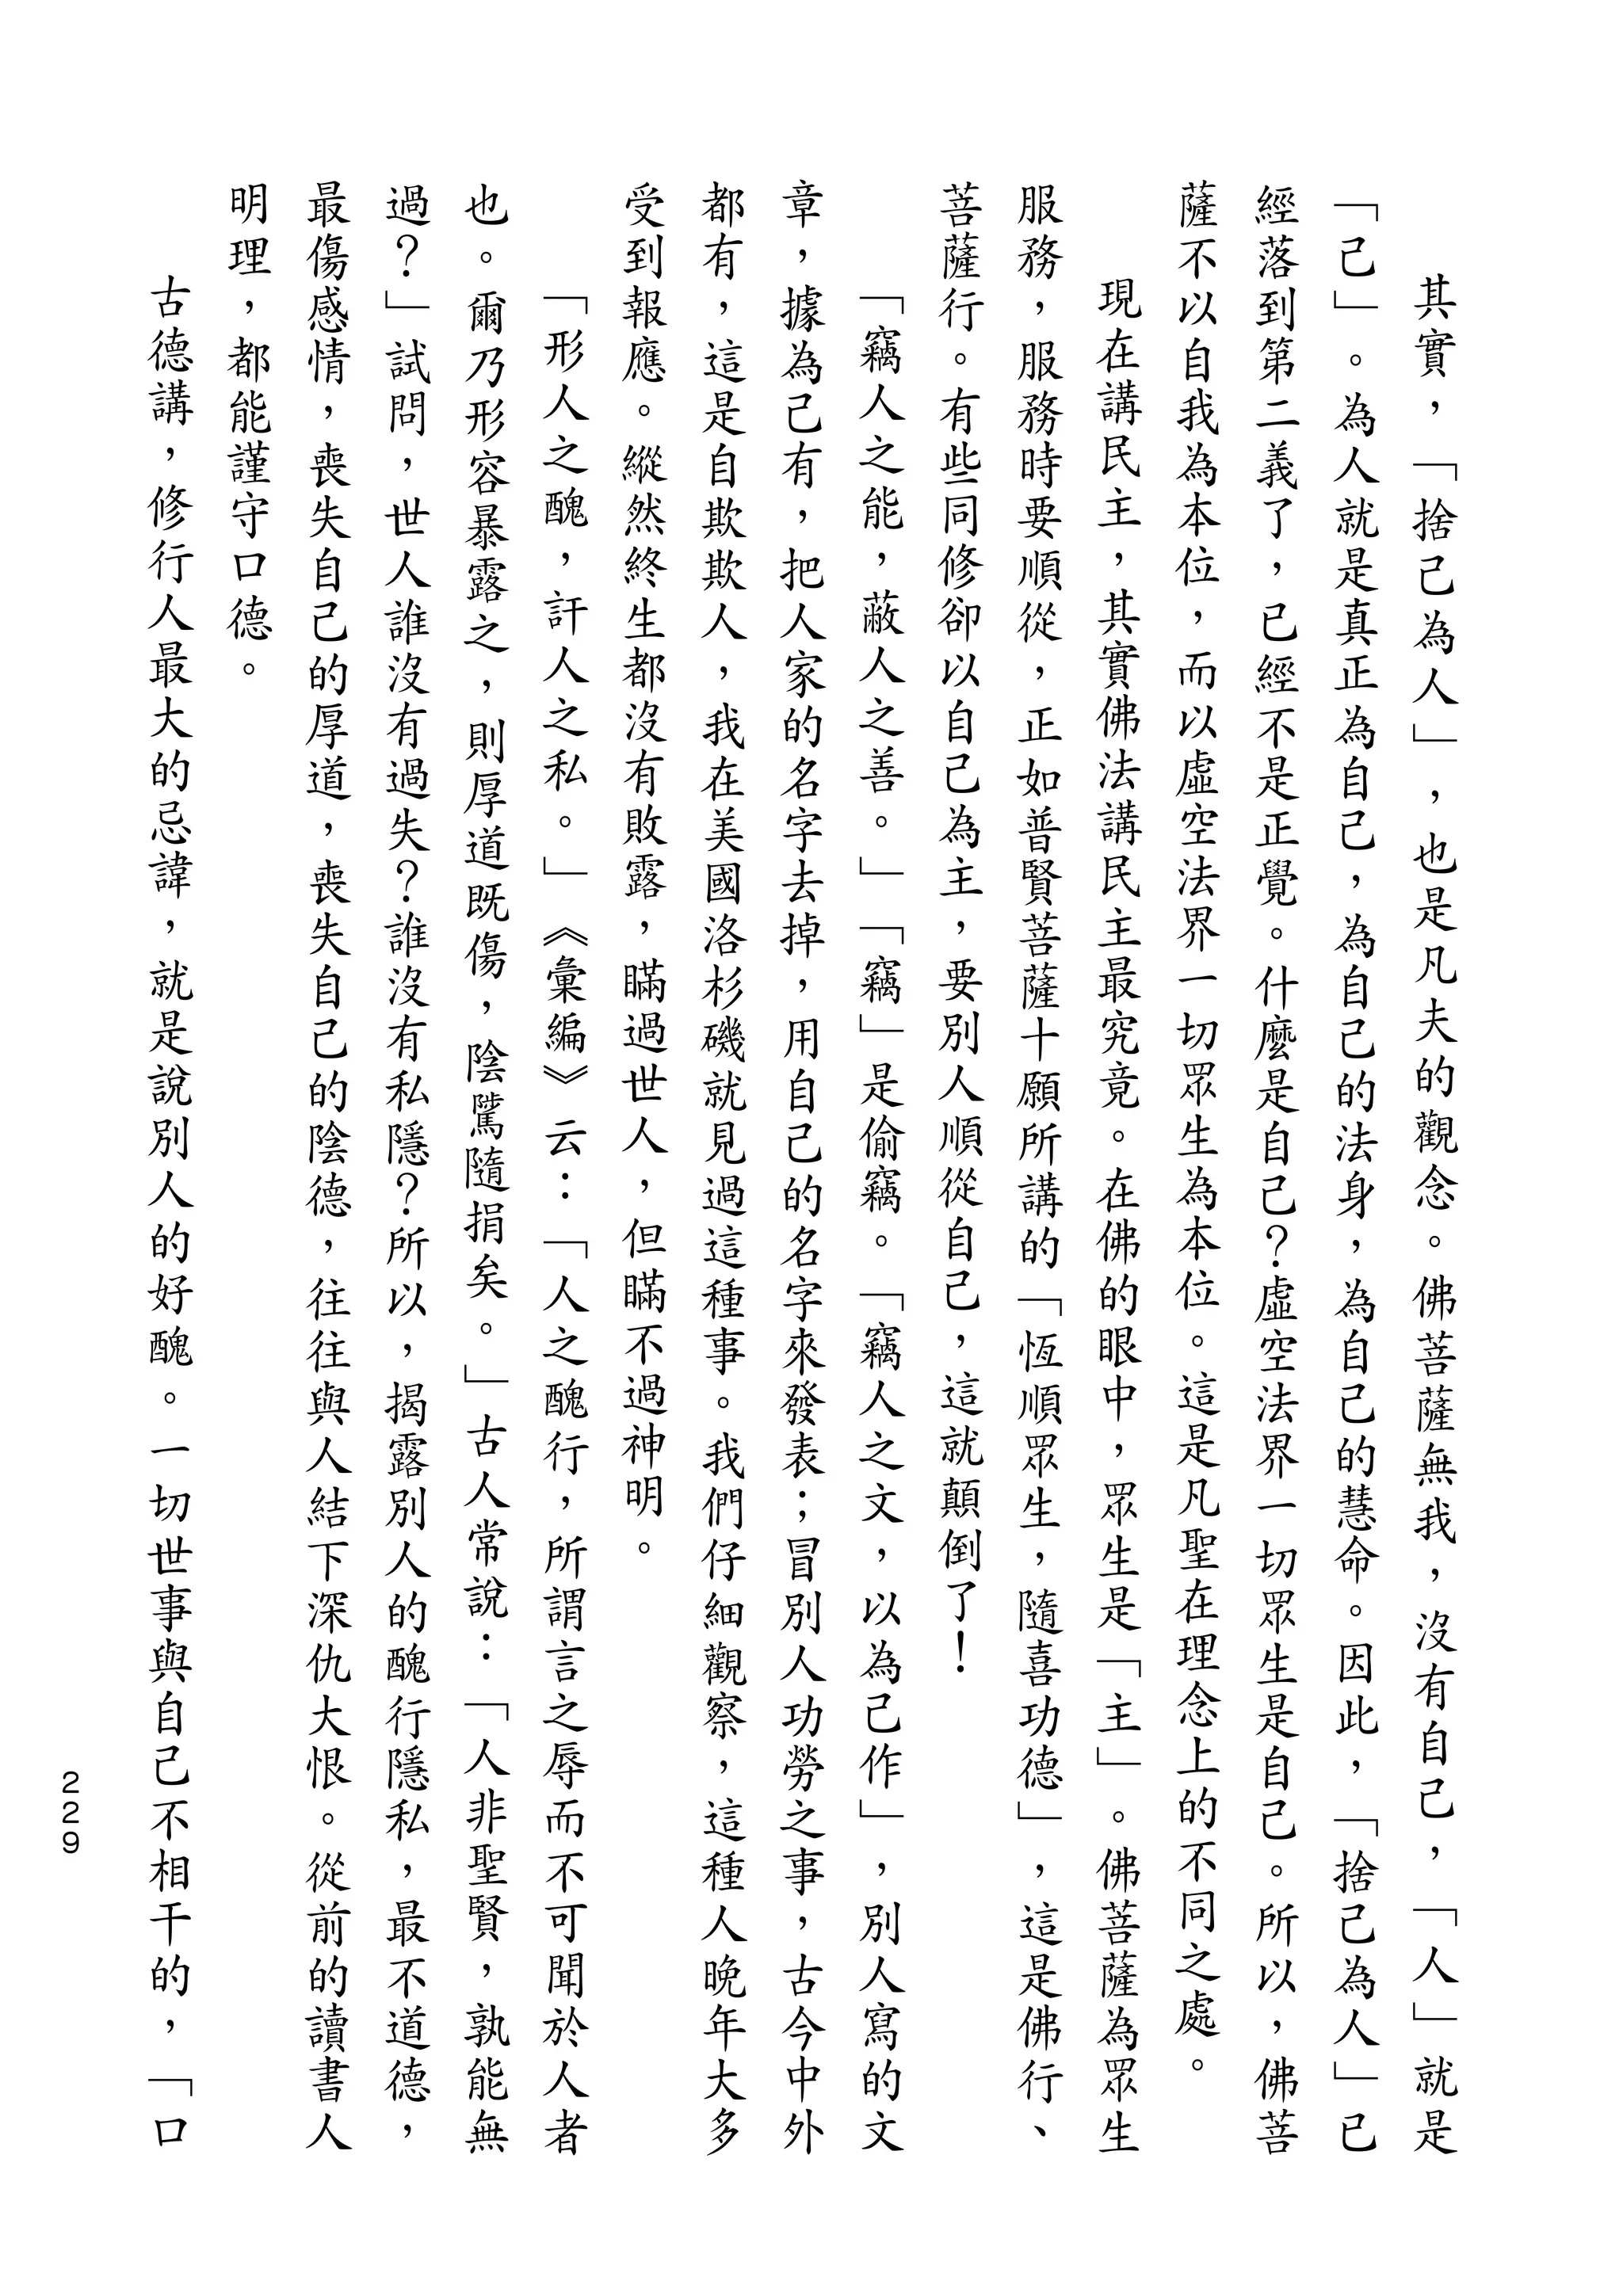 其實，「捨己為人」，也是凡夫的觀念。佛菩薩無我，沒有自己，「人」就是
「己」。為人就是真正為自己，為自己的法身，為自己的慧命。因此，「捨己為人」已
經落到第二義了，已經不是正覺。什麼是自己？虛空法界一切眾生是自己。所以，佛菩
薩不以自我為本位，而以虛空法界一切眾生為本位。這是凡聖在理念上的不同之處。
現在講民主，其實佛法講民主最究竟。在佛的眼中，眾生是「主」。佛菩薩為眾生
服務，服務時要順從，正如普賢菩薩十願所講的「恆順眾生，隨喜功德」，這是佛行、
菩薩行。有些同修卻以自己為主，要別人順從自己，這就顛倒了！
「竊人之能，蔽人之善。」「竊」是偷竊。「竊人之文，以為己作」，別人寫的文
章，據為己有，把人家的名字去掉，用自己的名字來發表；冒別人功勞之事，古今中外
都有，這是自欺欺人，我在美國洛杉磯就見過這種事。我們仔細觀察，這種人晚年大多
受到報應。縱然終生都沒有敗露，瞞過世人，但瞞不過神明。
「形人之醜，訐人之私。」《彙編》云：「人之醜行，所謂言之辱而不可聞於人者
也。爾乃形容暴露之，則厚道既傷，陰騭隨捐矣。」古人常說：「人非聖賢，孰能無
過？」試問，世人誰沒有過失？誰沒有私隱？所以，揭露別人的醜行隱私，最不道德，
最傷感情，喪失自己的厚道，喪失自己的陰德，往往與人結下深仇大恨。從前的讀書人
明理，都能謹守口德。
古德講，修行人最大的忌諱，就是說別人的好醜。一切世事與自己不相干的，「口
229